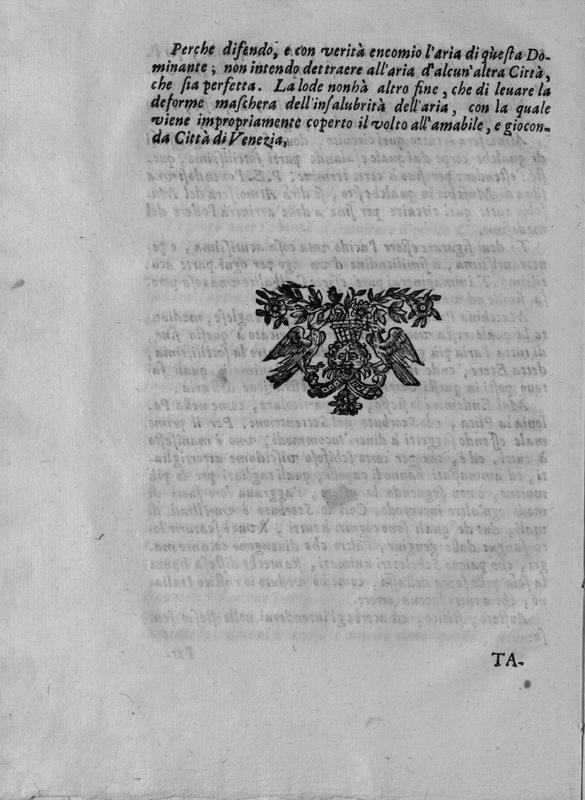 Perche difendo, e con verità encomio l'aria di questa Do-
minante; non intendo dettraere all'aria d'alcun'altra Città,
che sia perfetta. La lode nonhà altro fine, che di leuare la
deforme maschera dell'insalubrità dell'aria, con la quale
viene impropriamente coperto il volto all'amabile, e giocon-
da Città di Venezia,
TA-